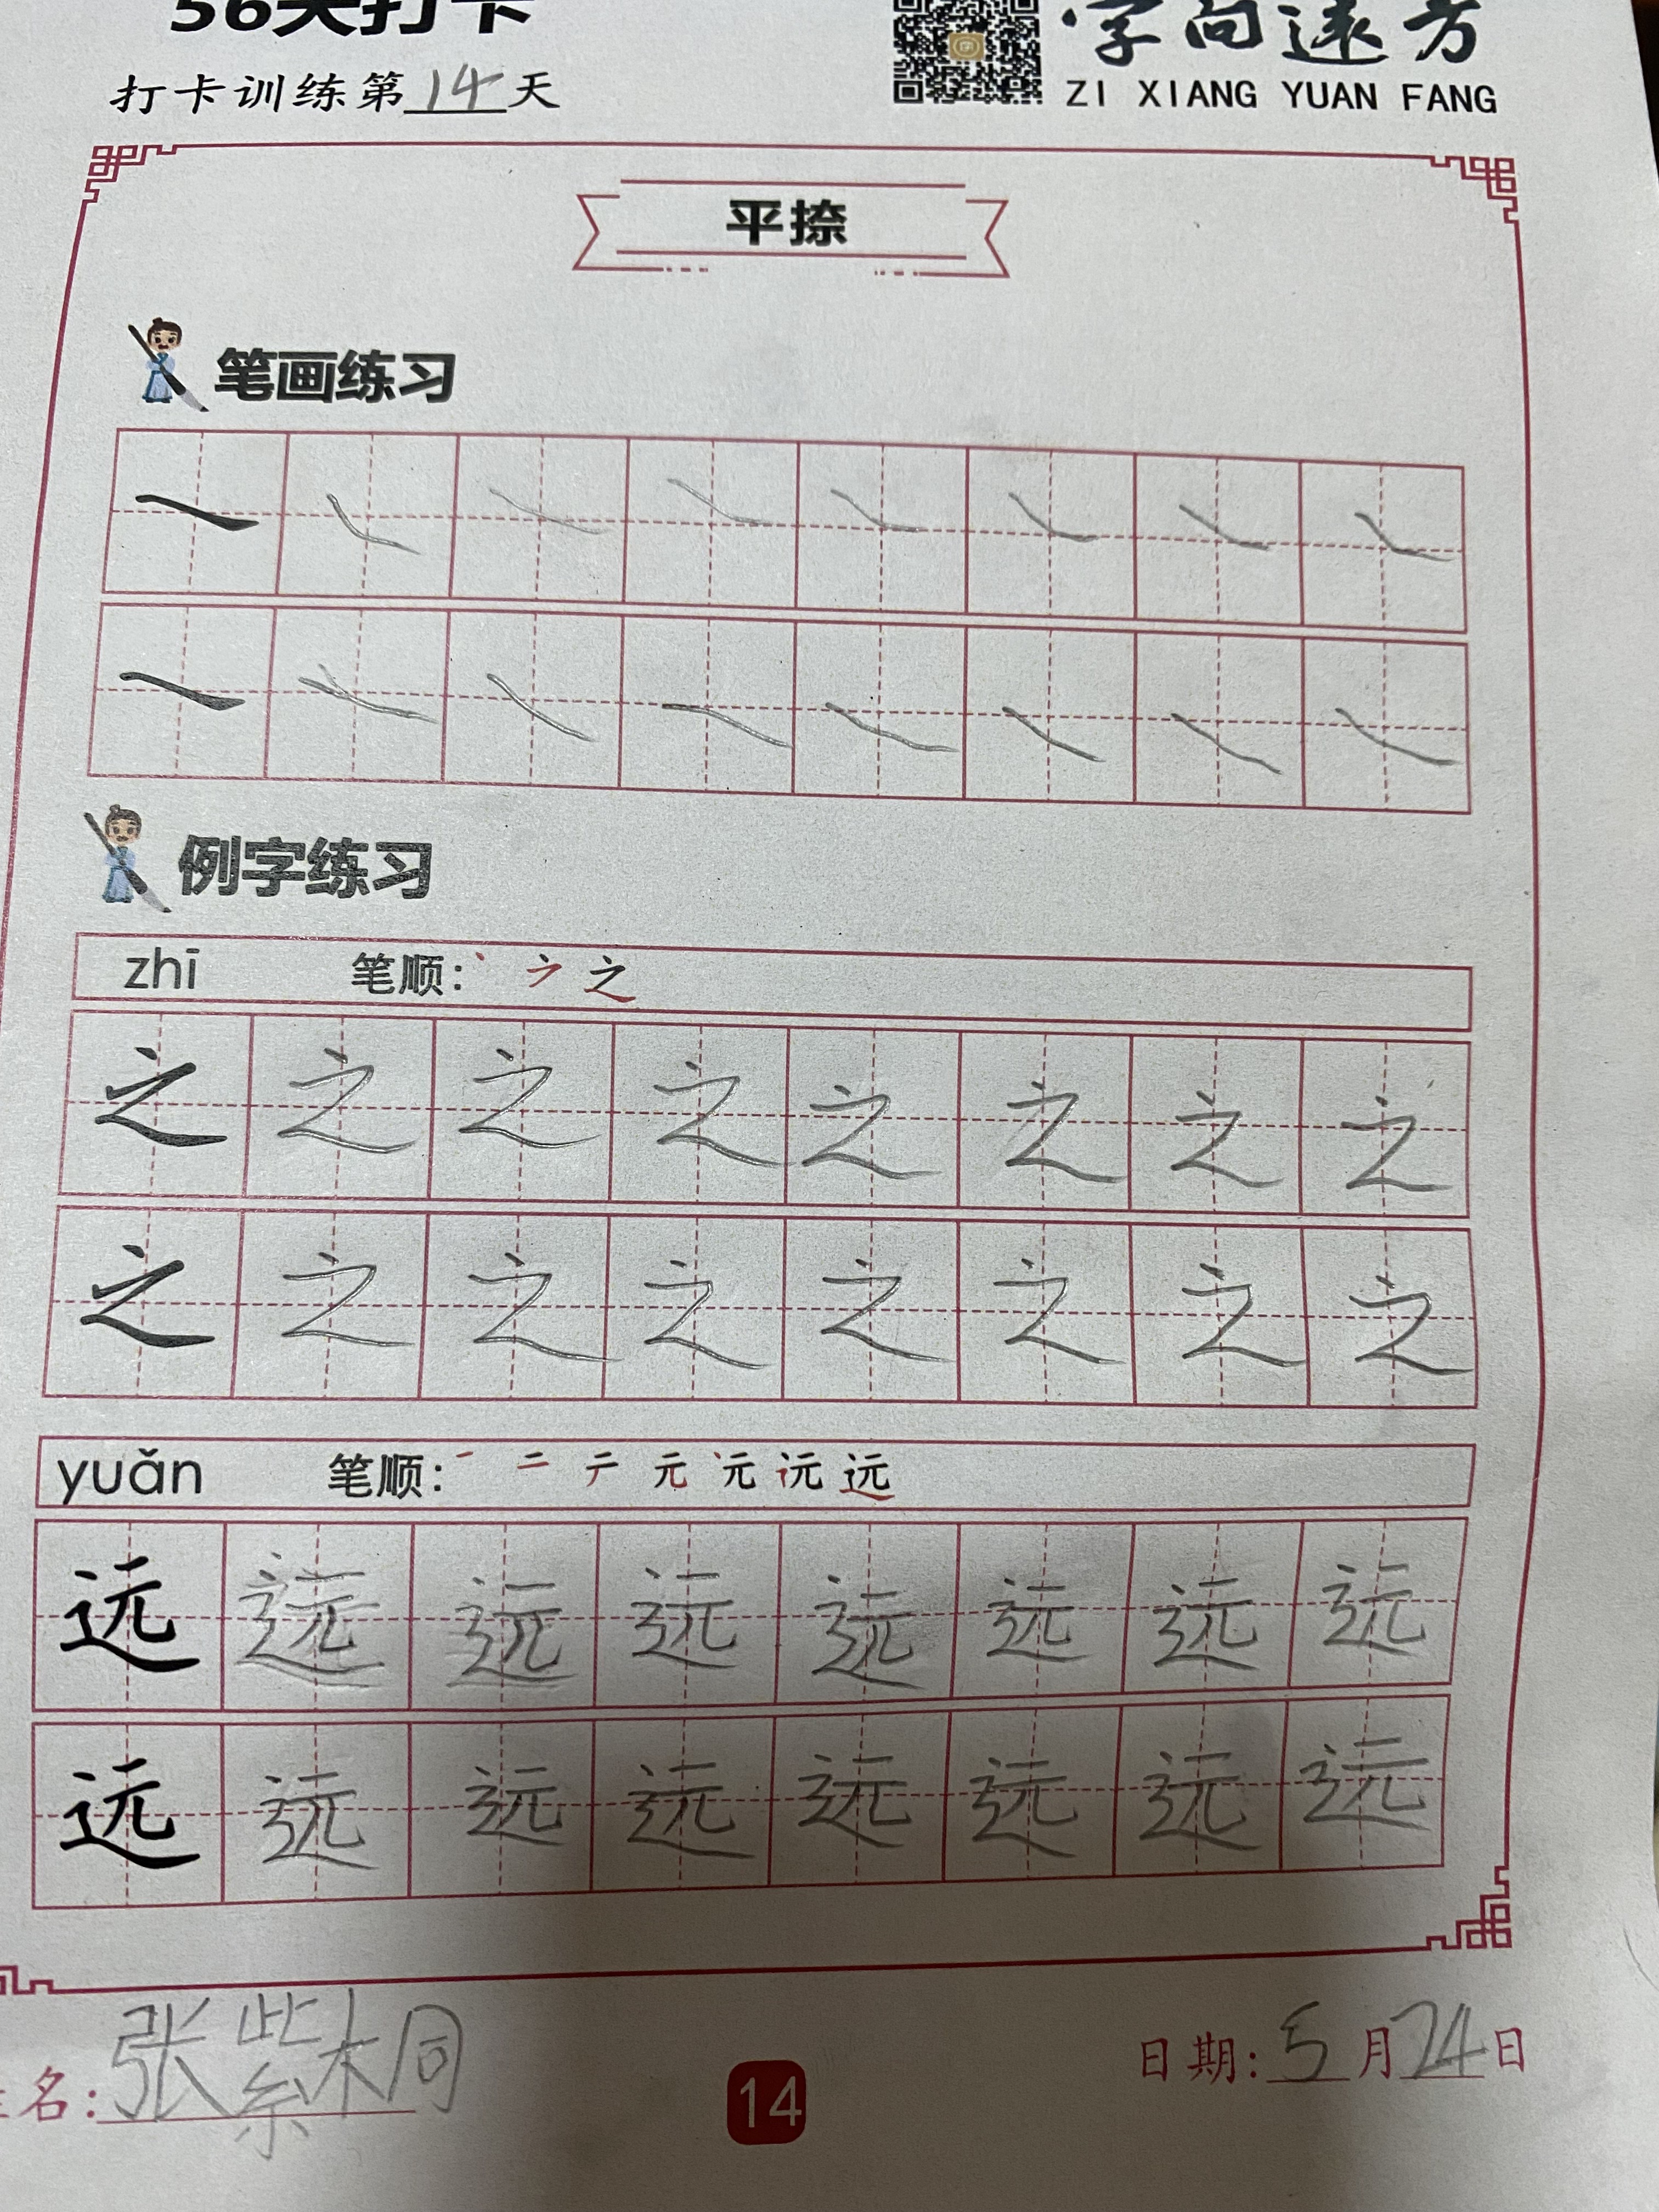 56天打卡
字向远方
打卡训练第14天
ZI XIANG YUAN FANG
平捺
笔画练习
例字练习
zhī 笔顺: 丶 之
之 之 之 之 之 之 之 之
之 之 之 之 之 之 之 之
yuǎn 笔顺: 一 二 元 远
远 远 远 远 远 远 远 远
远 远 远 远 远 远 远 远
名: 张紫桐
14
日期: 5月24日